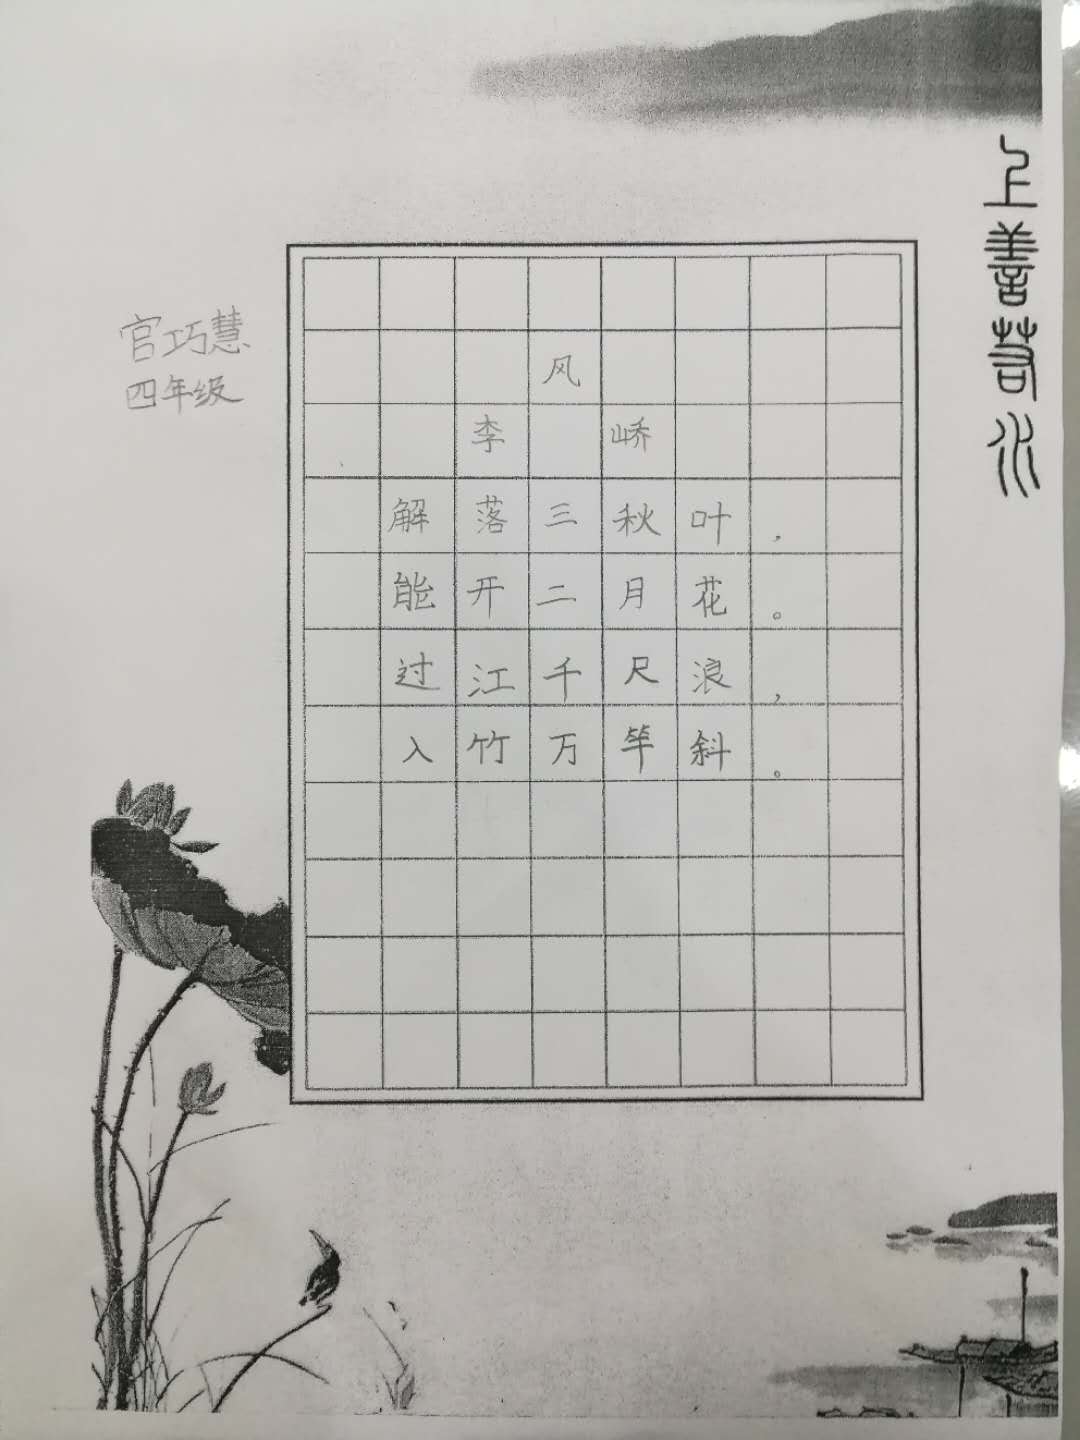 上善若水
官巧慧
四年级
风
李峤
解落三秋叶，
能开二月花。
过江千尺浪，
入竹万竿斜。